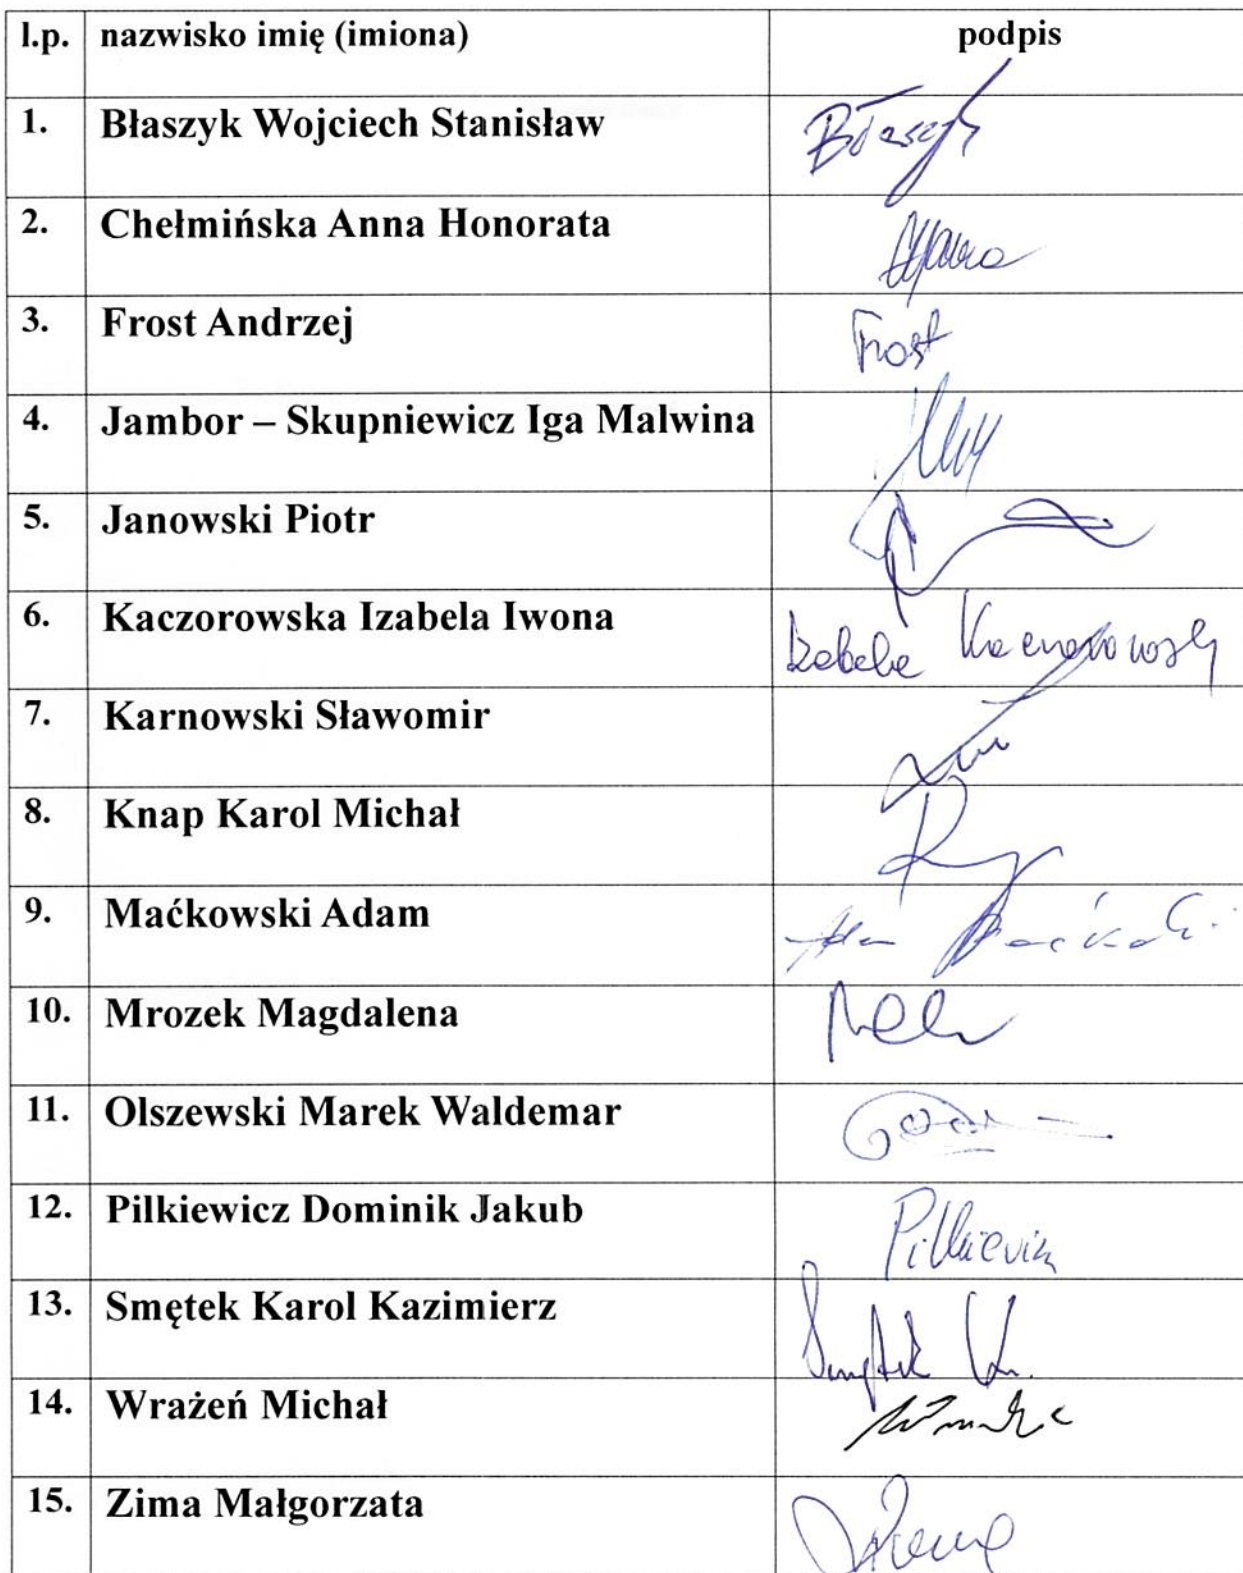 l.p. nazwisko imię (imiona) podpis
1. Błaszyk Wojciech Stanisław Błaszyk
2. Chełmińska Anna Honorata
3. Frost Andrzej Frost
4. Jambor – Skupniewicz Iga Malwina
5. Janowski Piotr
6. Kaczorowska Izabela Iwona Izabela Kaczorowska
7. Karnowski Sławomir
8. Knap Karol Michał
9. Maćkowski Adam Adam Maćkowski
10. Mrozek Magdalena
11. Olszewski Marek Waldemar
12. Pilkiewicz Dominik Jakub Pilkiewicz
13. Smętek Karol Kazimierz Smętek K.
14. Wrażeń Michał
15. Zima Małgorzata